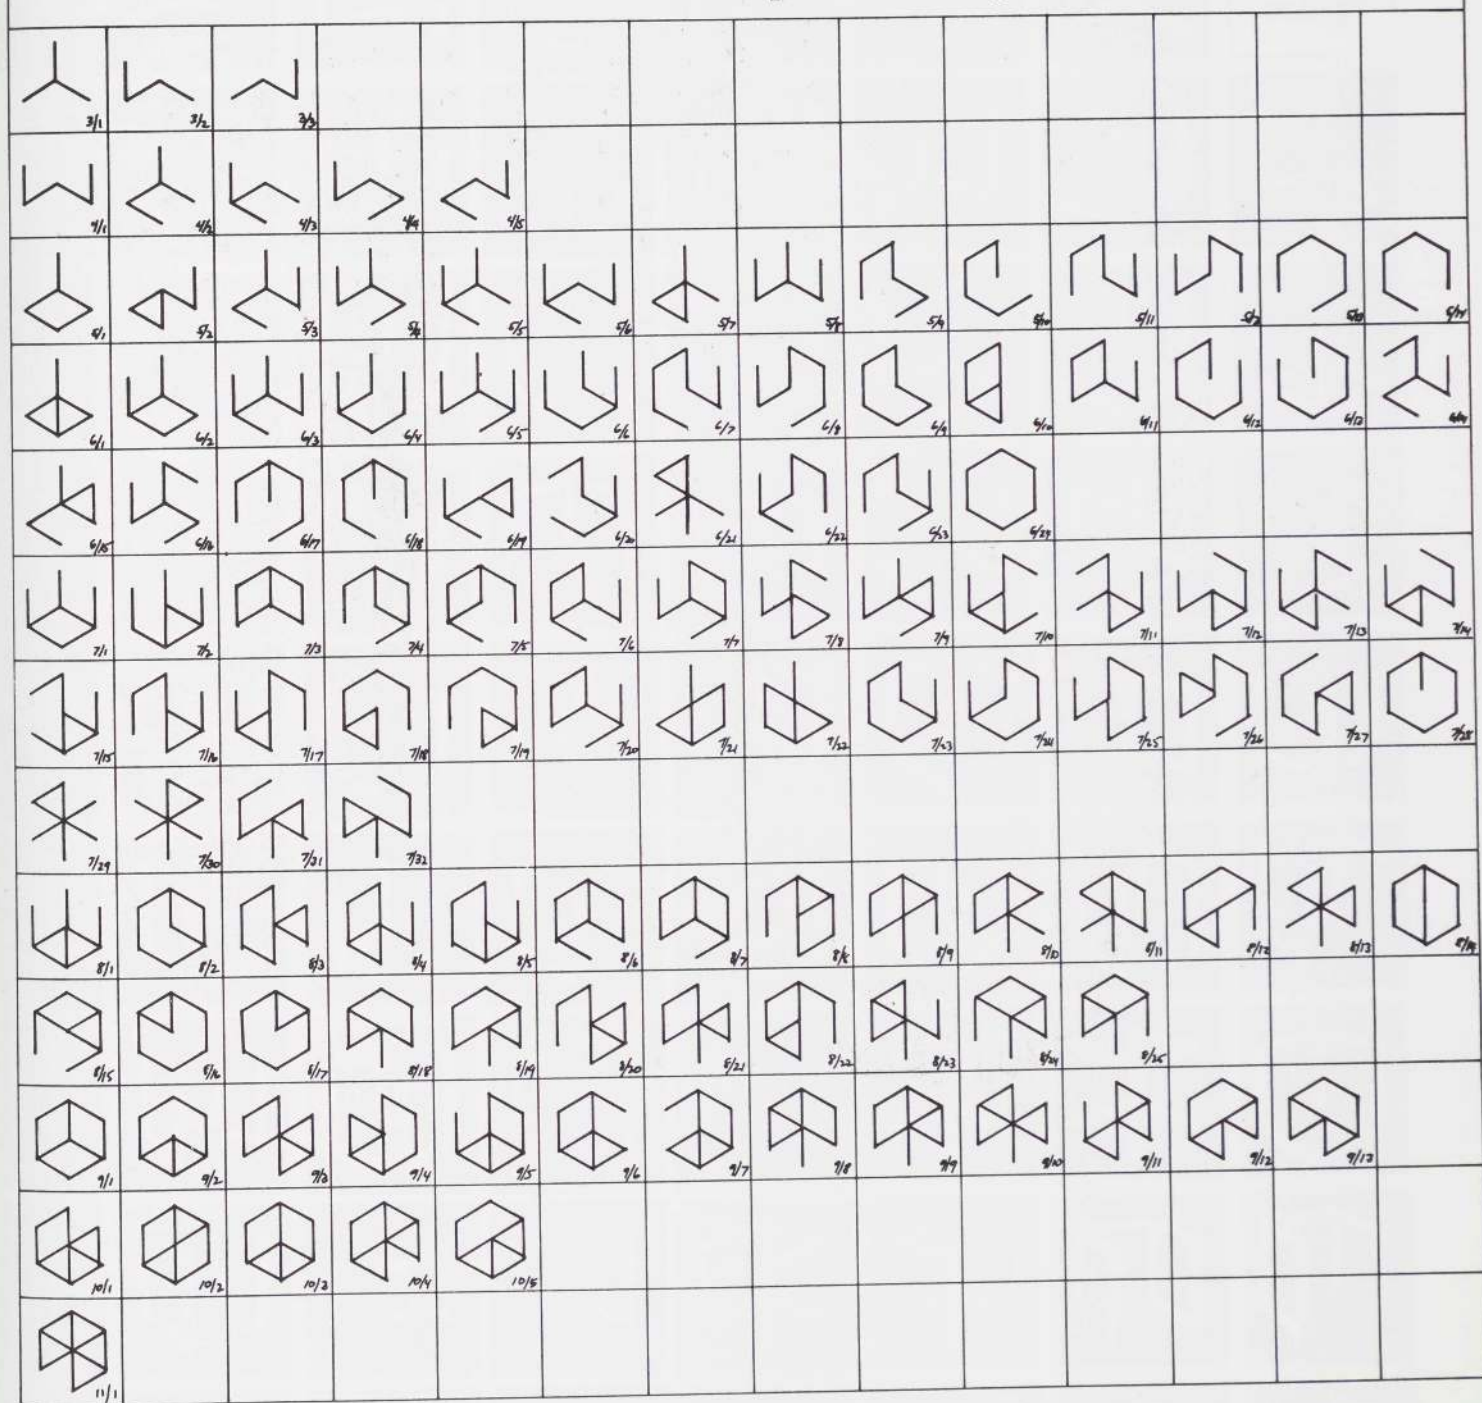 3/1 3/2 3/3
4/1 4/2 4/3 4/4 4/5
5/1 5/2 5/3 5/4 5/5 5/6 5/7 5/8 5/9 5/10 5/11 5/12 5/13 5/14
6/1 6/2 6/3 6/4 6/5 6/6 6/7 6/8 6/9 6/10 6/11 6/12 6/13 6/14
6/15 6/16 6/17 6/18 6/19 6/20 6/21 6/22 6/23 6/24
7/1 7/2 7/3 7/4 7/5 7/6 7/7 7/8 7/9 7/10 7/11 7/12 7/13 7/14
7/15 7/16 7/17 7/18 7/19 7/20 7/21 7/22 7/23 7/24 7/25 7/26 7/27 7/28
7/29 7/30 7/31 7/32
8/1 8/2 8/3 8/4 8/5 8/6 8/7 8/8 8/9 8/10 8/11 8/12 8/13 8/14
8/15 8/16 8/17 8/18 8/19 8/20 8/21 8/22 8/23 8/24 8/25
9/1 9/2 9/3 9/4 9/5 9/6 9/7 9/8 9/9 9/10 9/11 9/12 9/13
10/1 10/2 10/3 10/4 10/5
11/1